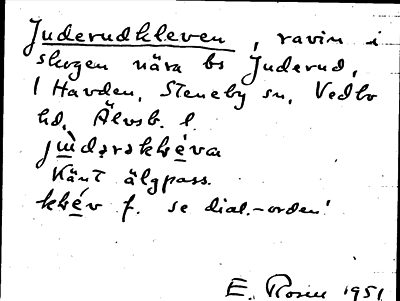 Juderudkleven, ravin i
skogen nära bs Juderud,
1 Havden, Steneby sn, Vedbo
hd, Älvsb. l.
Känt älgpass.
f. se dial.-orden!
E. Rosen 1951